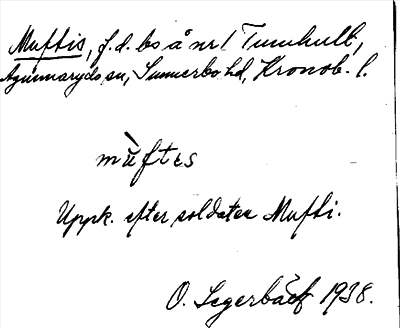 Muftis, f.d. bs å nr 1 Tunnhult,
Agunnaryds sn, Sunnerbo hd, Kronob. l.
mùftɛs
Uppk. efter soldaten Mufti.
O. Segerbäck 1938.